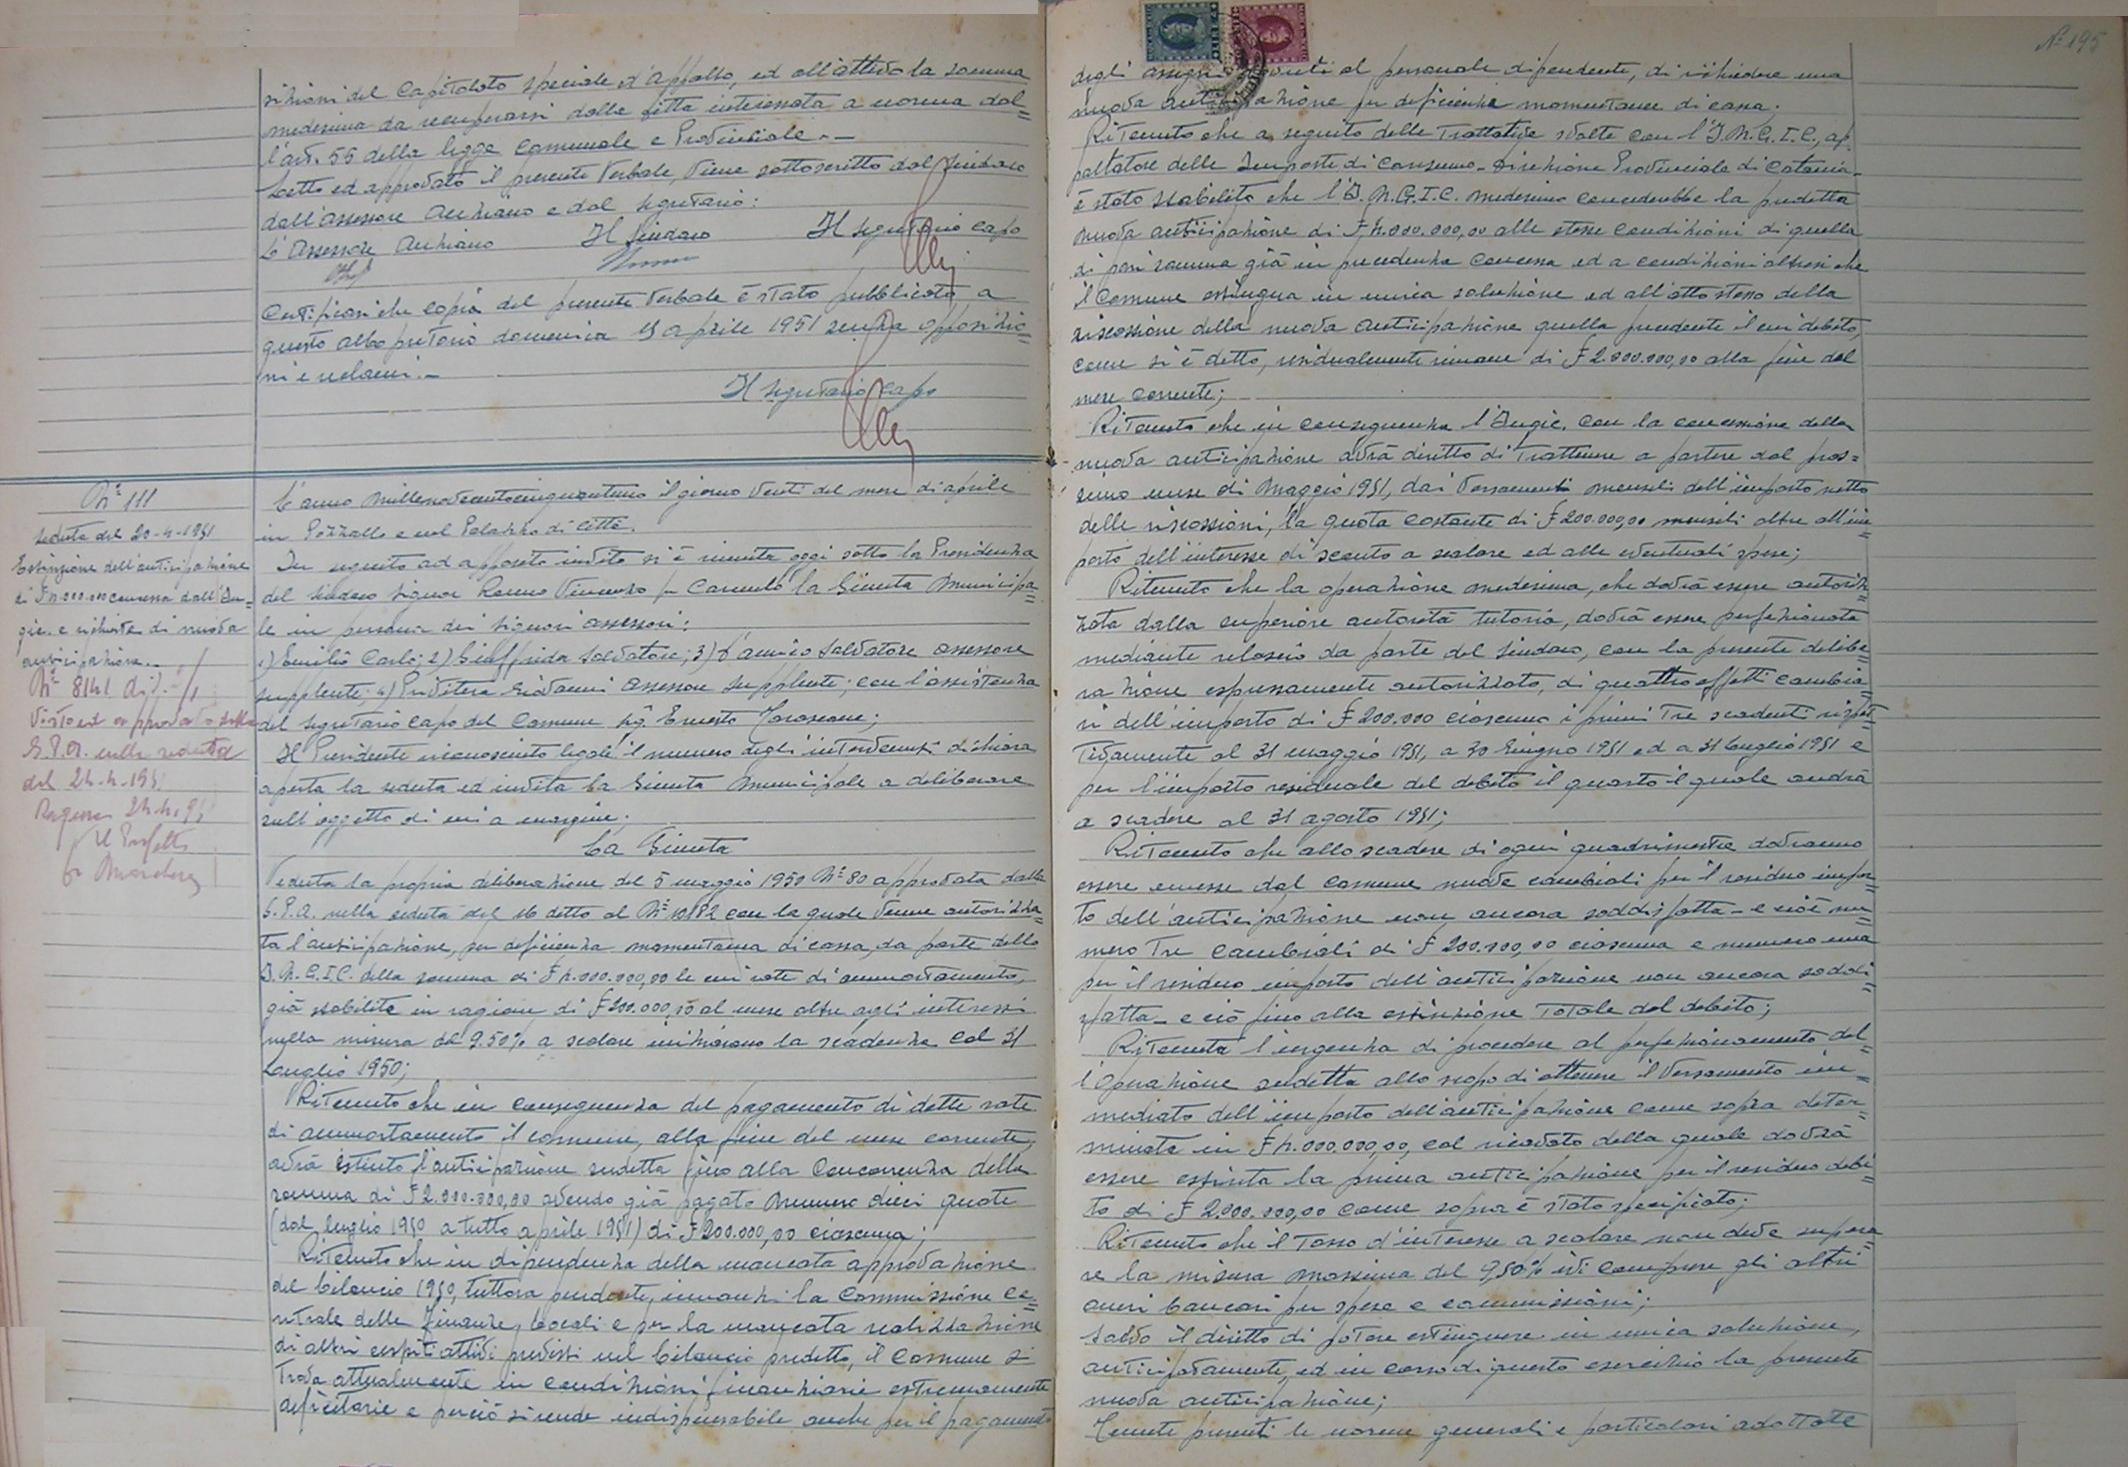 sizioni del Capitolato speciale d'Appalto, ed all'attivo la somma
medesima da recuperarsi dalla ditta interessata a norma del=
l'art. 55 della legge Comunale e Provinciale. —
Letto ed approvato il presente verbale, viene sottoscritto dal Sindaco
dall'Assessore Anziano e dal Segretario:
L'Assessore Anziano Il Sindaco Il Segretario Capo
Certificasi che copia del presente verbale è stato pubblicata a
questo albo pretorio domenica 15 aprile 1951 senza opposizio=
ni e reclami. —
Il Segretario Capo
N° 111
Seduta del 20-4-1951
Estinzione dell'anticipazione
di £ 4.000.000 concessa dall'In=
gic. e richiesta di nuova
anticipazione. —
N° 8141 Div.
Visto ed approvato dalla
G.P.A. nella seduta
del 24.4.1951
Ragusa 24.4.951
Il Prefetto
L'anno millenovecentocinquantuno il giorno venti del mese di aprile
in Pozzallo e nel Palazzo di Città.
In seguito ad apposito invito si è riunita oggi sotto la Presidenza
del Sindaco Signor Vincenzo fu Carmelo la Giunta Municipa=
le in persona dei Signori Assessori:
1) Emilio Carlo; 2) Giuffrida Salvatore; 3) D'Amico Salvatore Assessore
supplente; 4) Privitera Giovanni Assessore supplente; con l'assistenza
del Segretario Capo del Comune Sig. Ernesto
Il Presidente riconosciuto legale il numero degli intervenuti dichiara
aperta la seduta ed invita la Giunta Municipale a deliberare
sull'oggetto di cui a margine;
La Giunta
Veduta la propria deliberazione del 5 maggio 1950 N° 80 approvata dalla
G.P.A. nella seduta del 16 detto al N° con la quale venne autorizza=
ta l'anticipazione, per deficienza momentanea di cassa, da parte dello
I.N.G.I.C. della somma di £ 4.000.000,00 le cui rate di ammortamento,
già stabilite in ragione di £ 200.000,00 al mese oltre agli interessi
nella misura del 9.50% a scalare iniziarono la scadenza col 31
Luglio 1950;
Ritenuto che in conseguenza del pagamento di dette rate
di ammortamento il comune, alla fine del mese corrente,
avrà estinto l'anticipazione sudetta fino alla concorrenza della
somma di £ 2.000.000,00 avendo già pagato numero dieci quote
(dal luglio 1950 a tutto aprile 1951) di £ 200.000,00 ciascuna;
Ritenuto che in dipendenza della mancata approvazione
del bilancio 1950, tuttora pendente, innanzi la Commissione Ce=
ntrale delle Finanze Locali e per la mancata realizzazione
di altri cespiti attivi previsti nel bilancio predetto, il Comune si
trova attualmente in condizioni finanziarie estremamente
deficitarie e perciò si rende indispensabile anche per il pagamento
N° 195
degli assegni dovuti al personale dipendente, di richiedere una
nuova anticipazione per deficienza momentanea di cassa.
Ritenuto che a seguito delle trattative svolte con l'I.N.G.I.C., ap=
paltatore delle Imposte di Consumo - Direzione Provinciale di Catania -
è stato stabilito che l'I.N.G.I.C. medesimo concederebbe la predetta
nuova anticipazione di £ 4.000.000,00 alle stesse condizioni di quella
di pari somma già in precedenza concessa ed a condizioni altresì che
il Comune estingua in unica soluzione ed all'atto stesso della
riscossione della nuova anticipazione quella precedente il cui debito,
come si è detto, residualmente rimane di £ 2.000.000,00 alla fine del
mese corrente;
Ritenuto che in conseguenza l'Ingic. con la concessione della
nuova anticipazione avrà diritto di trattenere a partire dal pros=
simo mese di Maggio 1951, dai versamenti mensili dell'importo netto
delle riscossioni, la quota costante di £ 200.000,00 mensili oltre all'im
porto dell'interesse di sconto a scalare ed alle eventuali spese;
Ritenuto che la operazione medesima, che dovrà essere autoriz=
zata dalla superiore autorità tutoria, dovrà essere perfezionata
mediante rilascio da parte del Sindaco, con la presente delibe=
razione espressamente autorizzato, di quattro effetti cambia=
ri dell'importo di £ 200.000 ciascuno i primi tre scadenti rispet=
tivamente al 31 maggio 1951, a 30 Giugno 1951 ed a 31 Luglio 1951 e
per l'importo residuale del debito il quarto il quale andrà
a scadere al 31 agosto 1951;
Ritenuto che allo scadere di ogni quadrimestre dovranno
essere emesse dal Comune nuove cambiali per il residuo impor=
to dell'anticipazione non ancora soddisfatta - e cioè nu=
mero tre cambiali di £ 200.000,00 ciascuna e numero una
per il residuo importo dell'anticipazione non ancora soddi=
sfatta - e ciò fino alla estinzione totale del debito;
Ritenuta l'urgenza di procedere al perfezionamento del=
l'operazione sudetta allo scopo di ottenere il versamento im=
mediato dell'importo dell'anticipazione come sopra deter=
minata in £ 4.000.000,00, col ricavato della quale dovrà
essere estinta la prima anticipazione per il residuo debi=
to di £ 2.000.000,00 come sopra è stato specificato;
Ritenuto che il tasso d'interesse a scalare non deve supera=
re la misura massima del 9,50% ivi comprese gli altri
oneri bancari per spese e commissioni;
Salvo il diritto di potere estinguere in unica soluzione,
anticipatamente, ed in corso di questo esercizio la presente
nuova anticipazione;
Tenute presenti le norme generali e particolari adottate